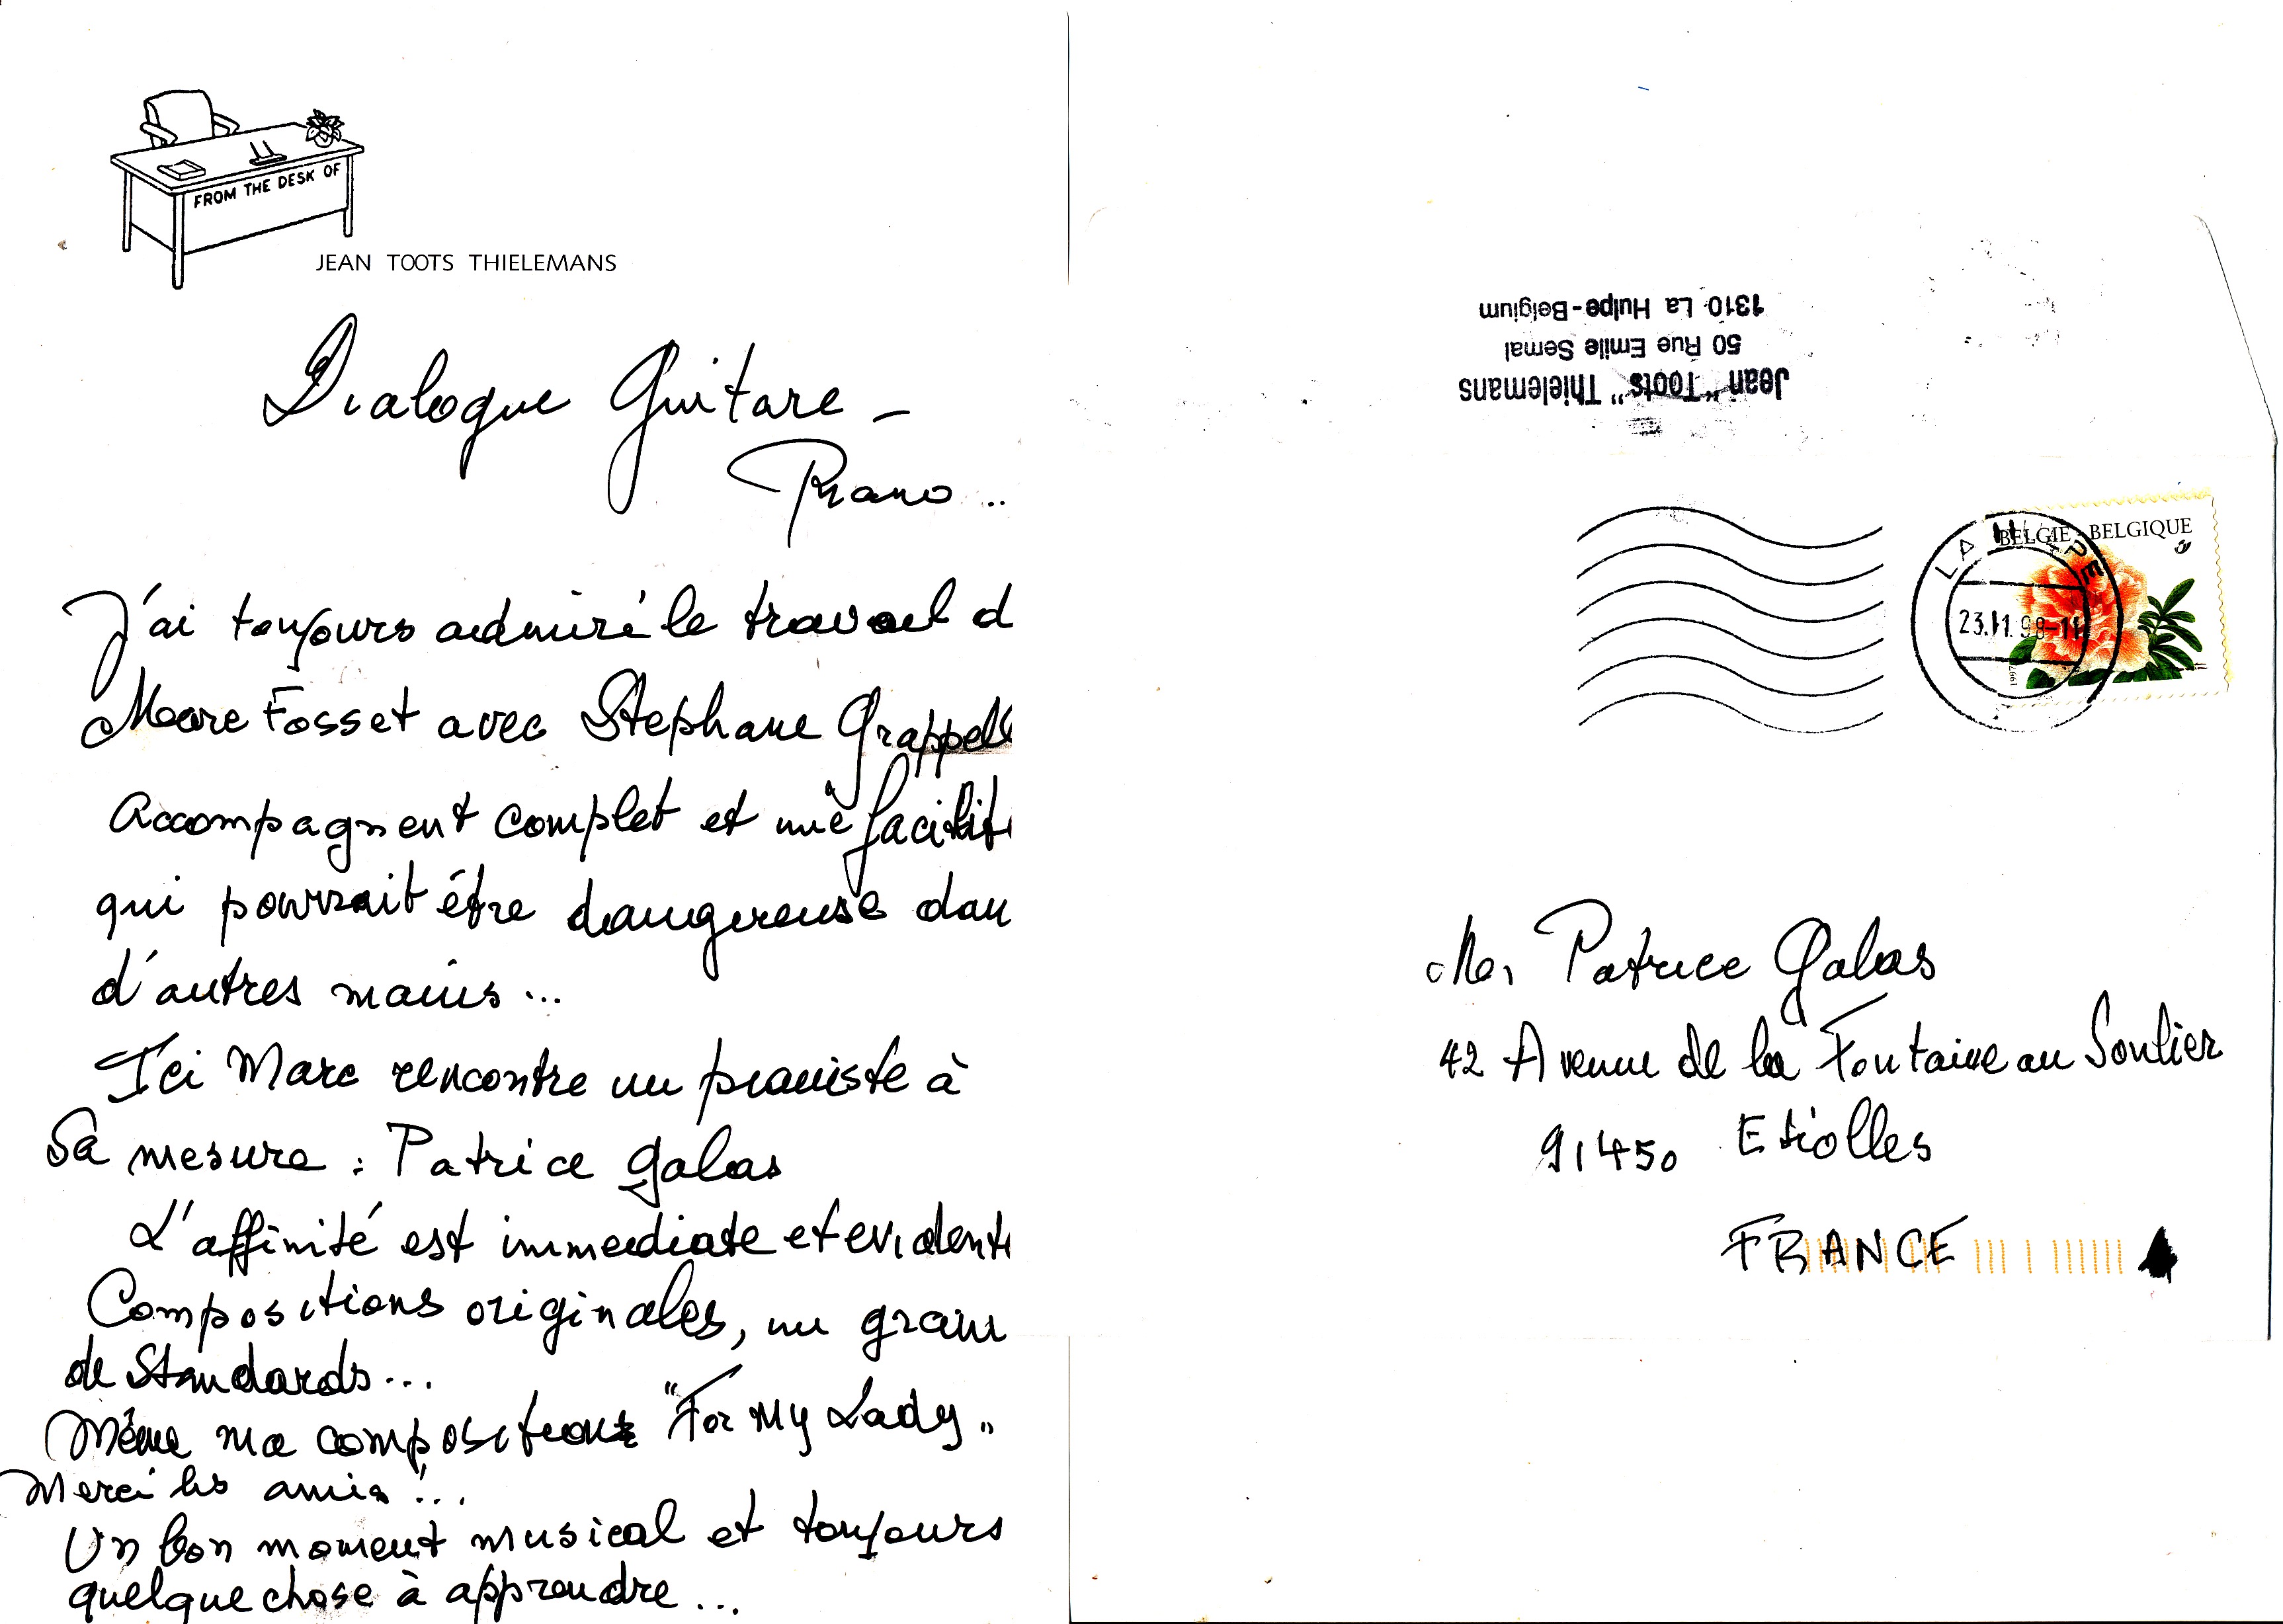 FROM THE DESK OF
JEAN TOOTS THIELEMANS
Dialogue Guitare -
Piano ..
J'ai toujours admiré le travail d
Marc Fosset avec Stephane Grappell
Accompagnent complet et une facilité
qui pourrait être dangereuse dan
d'autres mains...
Ici Marc rencontre un pianiste à
Sa mesure : Patrice Galas
L'affinité est immediate et evidente
Compositions originales, un grain
de Standards...
Même ma composition "For My Lady"
Merci les amis !...
Un bon moment musical et toujours
quelque chose à apprendre...
Jean "Toots" Thielemans
50 Rue Emile Semal
1310 La Hulpe-Belgium
BELGIË-BELGIQUE
LA HULPE
23.11.98-11
1997
Mr Patrice Galas
42 Avenue de la Fontaine au Soulier
91450 Etiolles
FRANCE